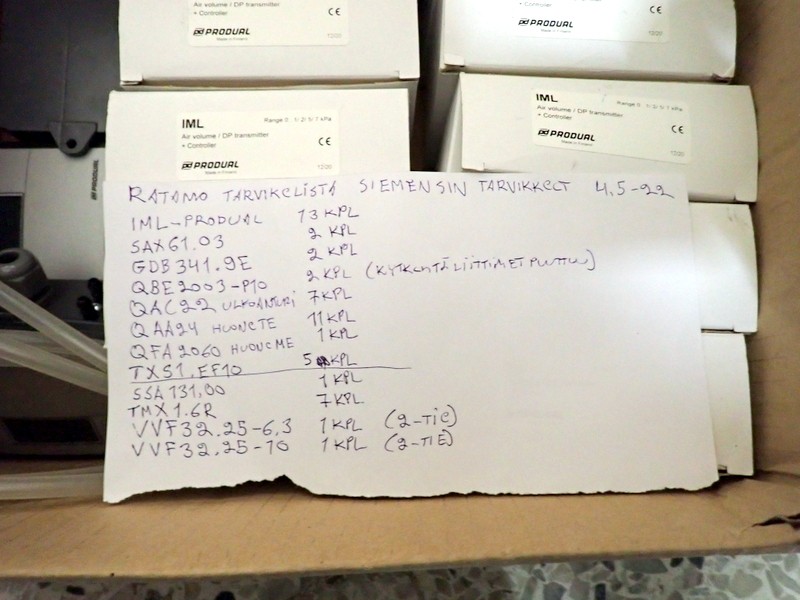 Air volume / DP transmitter
+ Controller
CE
PRODUAL
Made in Finland
12/20
+ Controller
CE
PRODUAL
Made in Finland
10/20
IML
Range 0...1/ 2/ 5/ 7 kPa
Air volume / DP transmitter
+ Controller
CE
PRODUAL
Made in Finland
12/20
IML
Range 0...1/ 2/ 5/ 7 kPa
Air volume / DP transmitter
+ Controller
CE
PRODUAL
Made in Finland
12/20
PRODUAL
RATAMO TARVIKELISTA SIEMENSIN TARVIKKELT 4.5-22
IML-PRODUAL 13 KPL
SAX61.03 2 KPL
GDB341.9E 2 KPL
QBE2003-P10 2 KPL (KYTKENTÄLIITTIMET PUTTUU)
QAC22 ULKOANTURI 7 KPL
QAA24 HUONETE 11 KPL
QFA2060 HUONEME 1 KPL
TXS1.EF10 5 KPL
SSA131,00 1 KPL
TMX1.6R 7 KPL
VVF32.25-6,3 1 KPL (2-TIE)
VVF32.25-10 1 KPL (2-TIE)